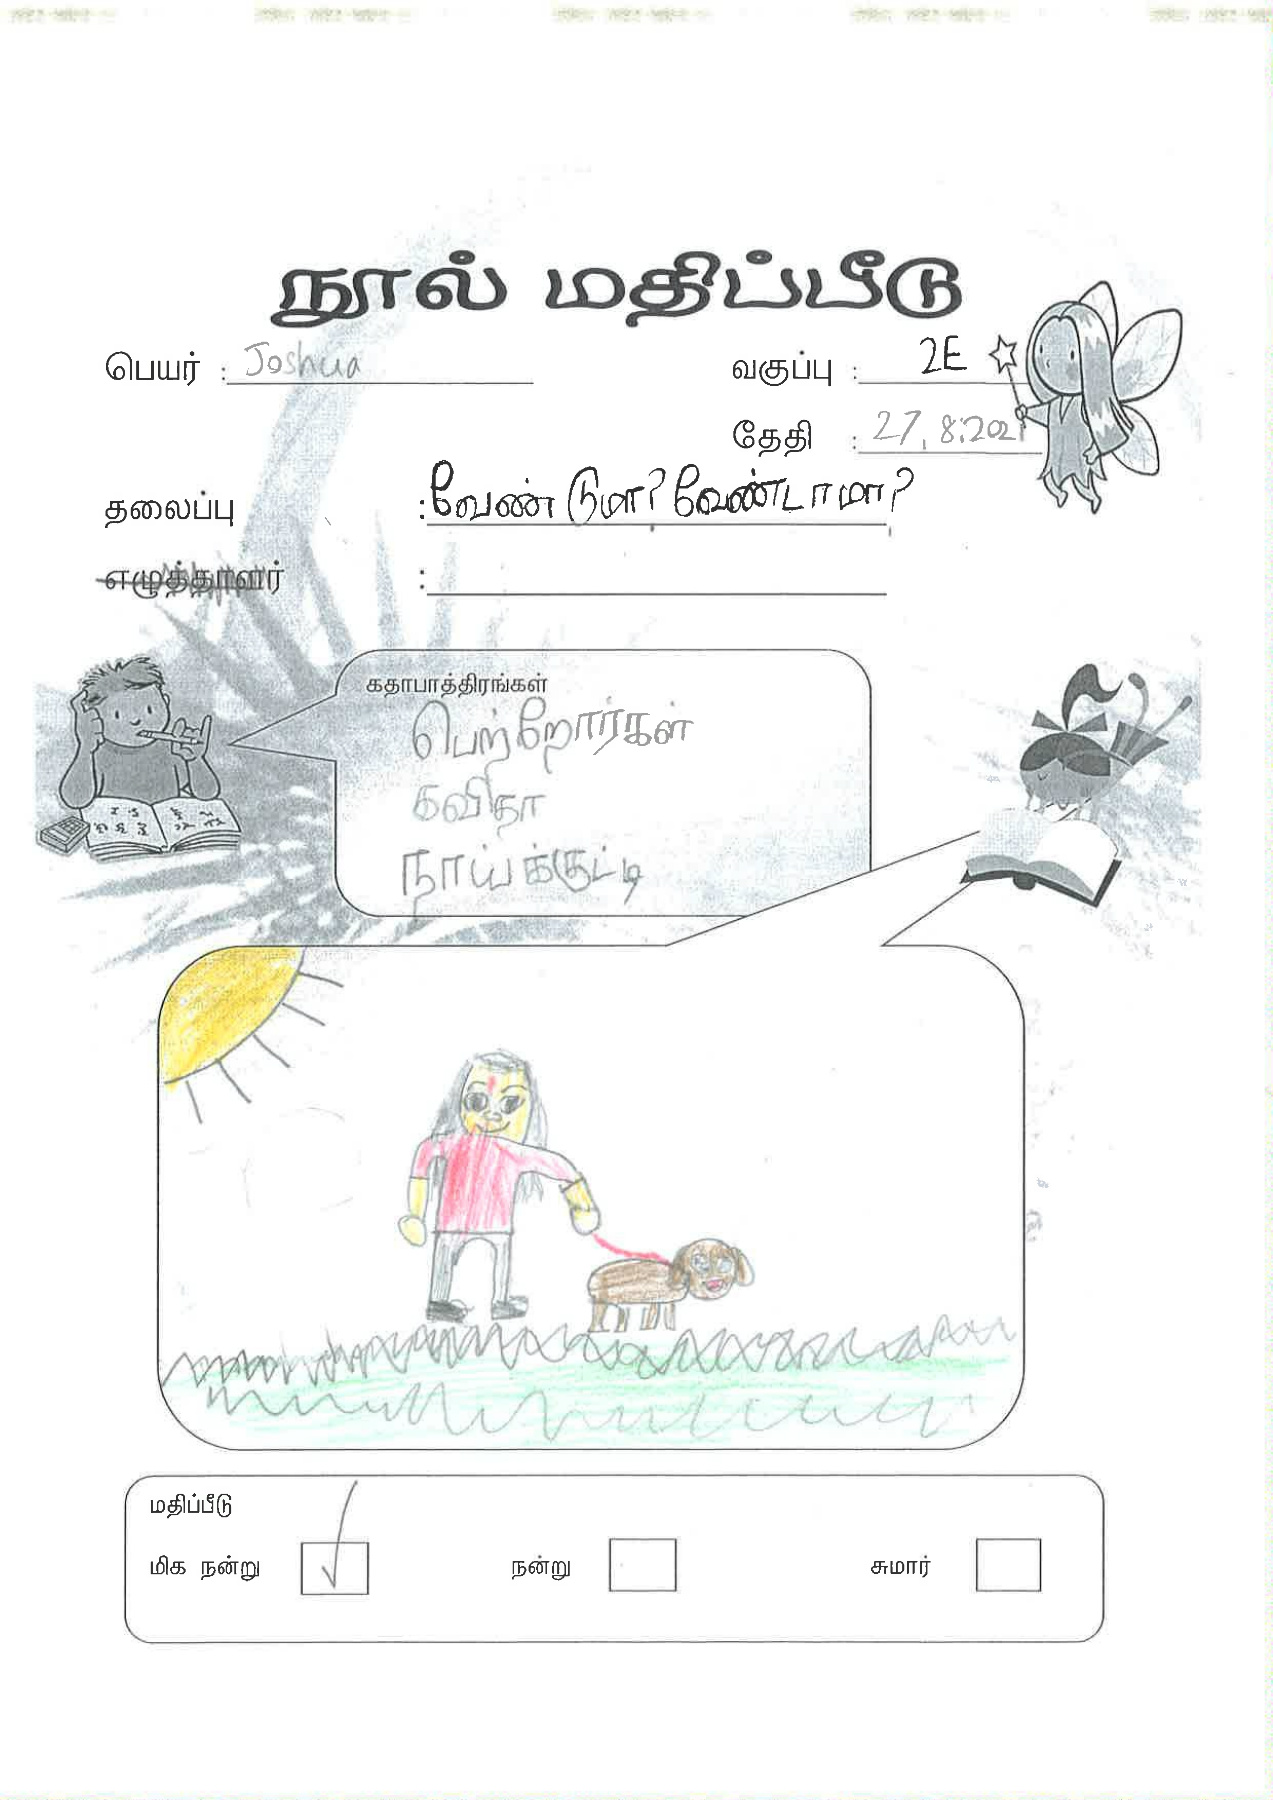 நூல் மதிப்பீடு
பெயர் : Joshua வகுப்பு : 2E
தேதி : 27.8.2021
தலைப்பு : வேண்டுமா? வேண்டாமா?
எழுத்தாளர் :
கதாபாத்திரங்கள்
பெற்றோர்கள்
கவிதா
நாய்க்குட்டி
மதிப்பீடு
மிக நன்று நன்று சுமார்